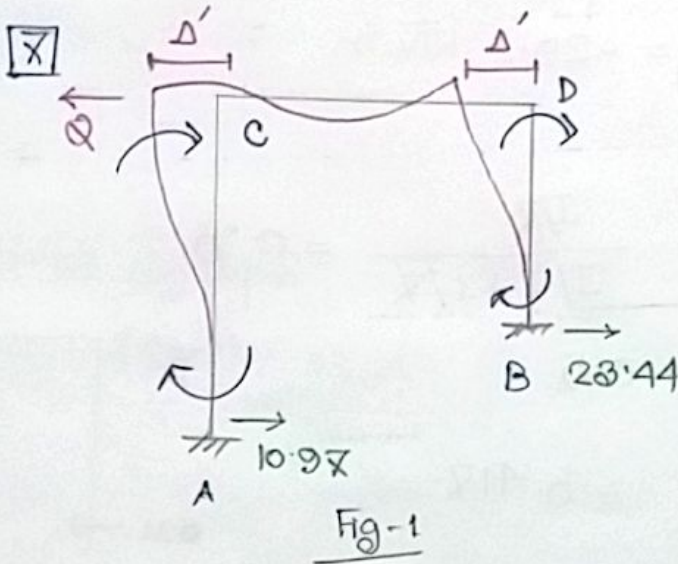 X
Δ' Δ'
Q
C D
B 23.44
10.97
A
Fig-1